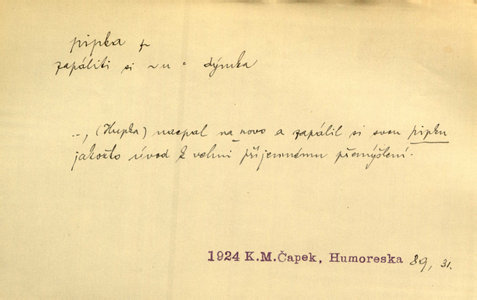 pipka f
zapáliti si ~u = dýmka
.., (Hupka) nacpal na novo a zapálil si svou pipku
jakožto úvod k velmi příjemnému přemýšlení.
1924 K.M.Čapek, Humoreska 89, 31.